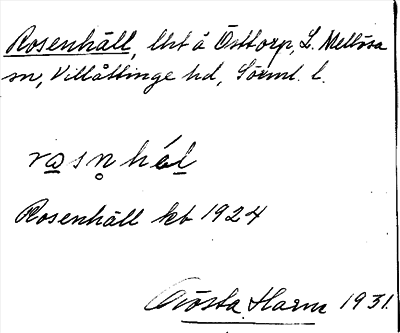 Rosenhäll, lht å Östtorp, L. Mellösa
sn, Villåttinge hd, Sörml. l.
rasn̥hɛ́l
Rosenhäll kb 1924
Gösta Harm 1931.